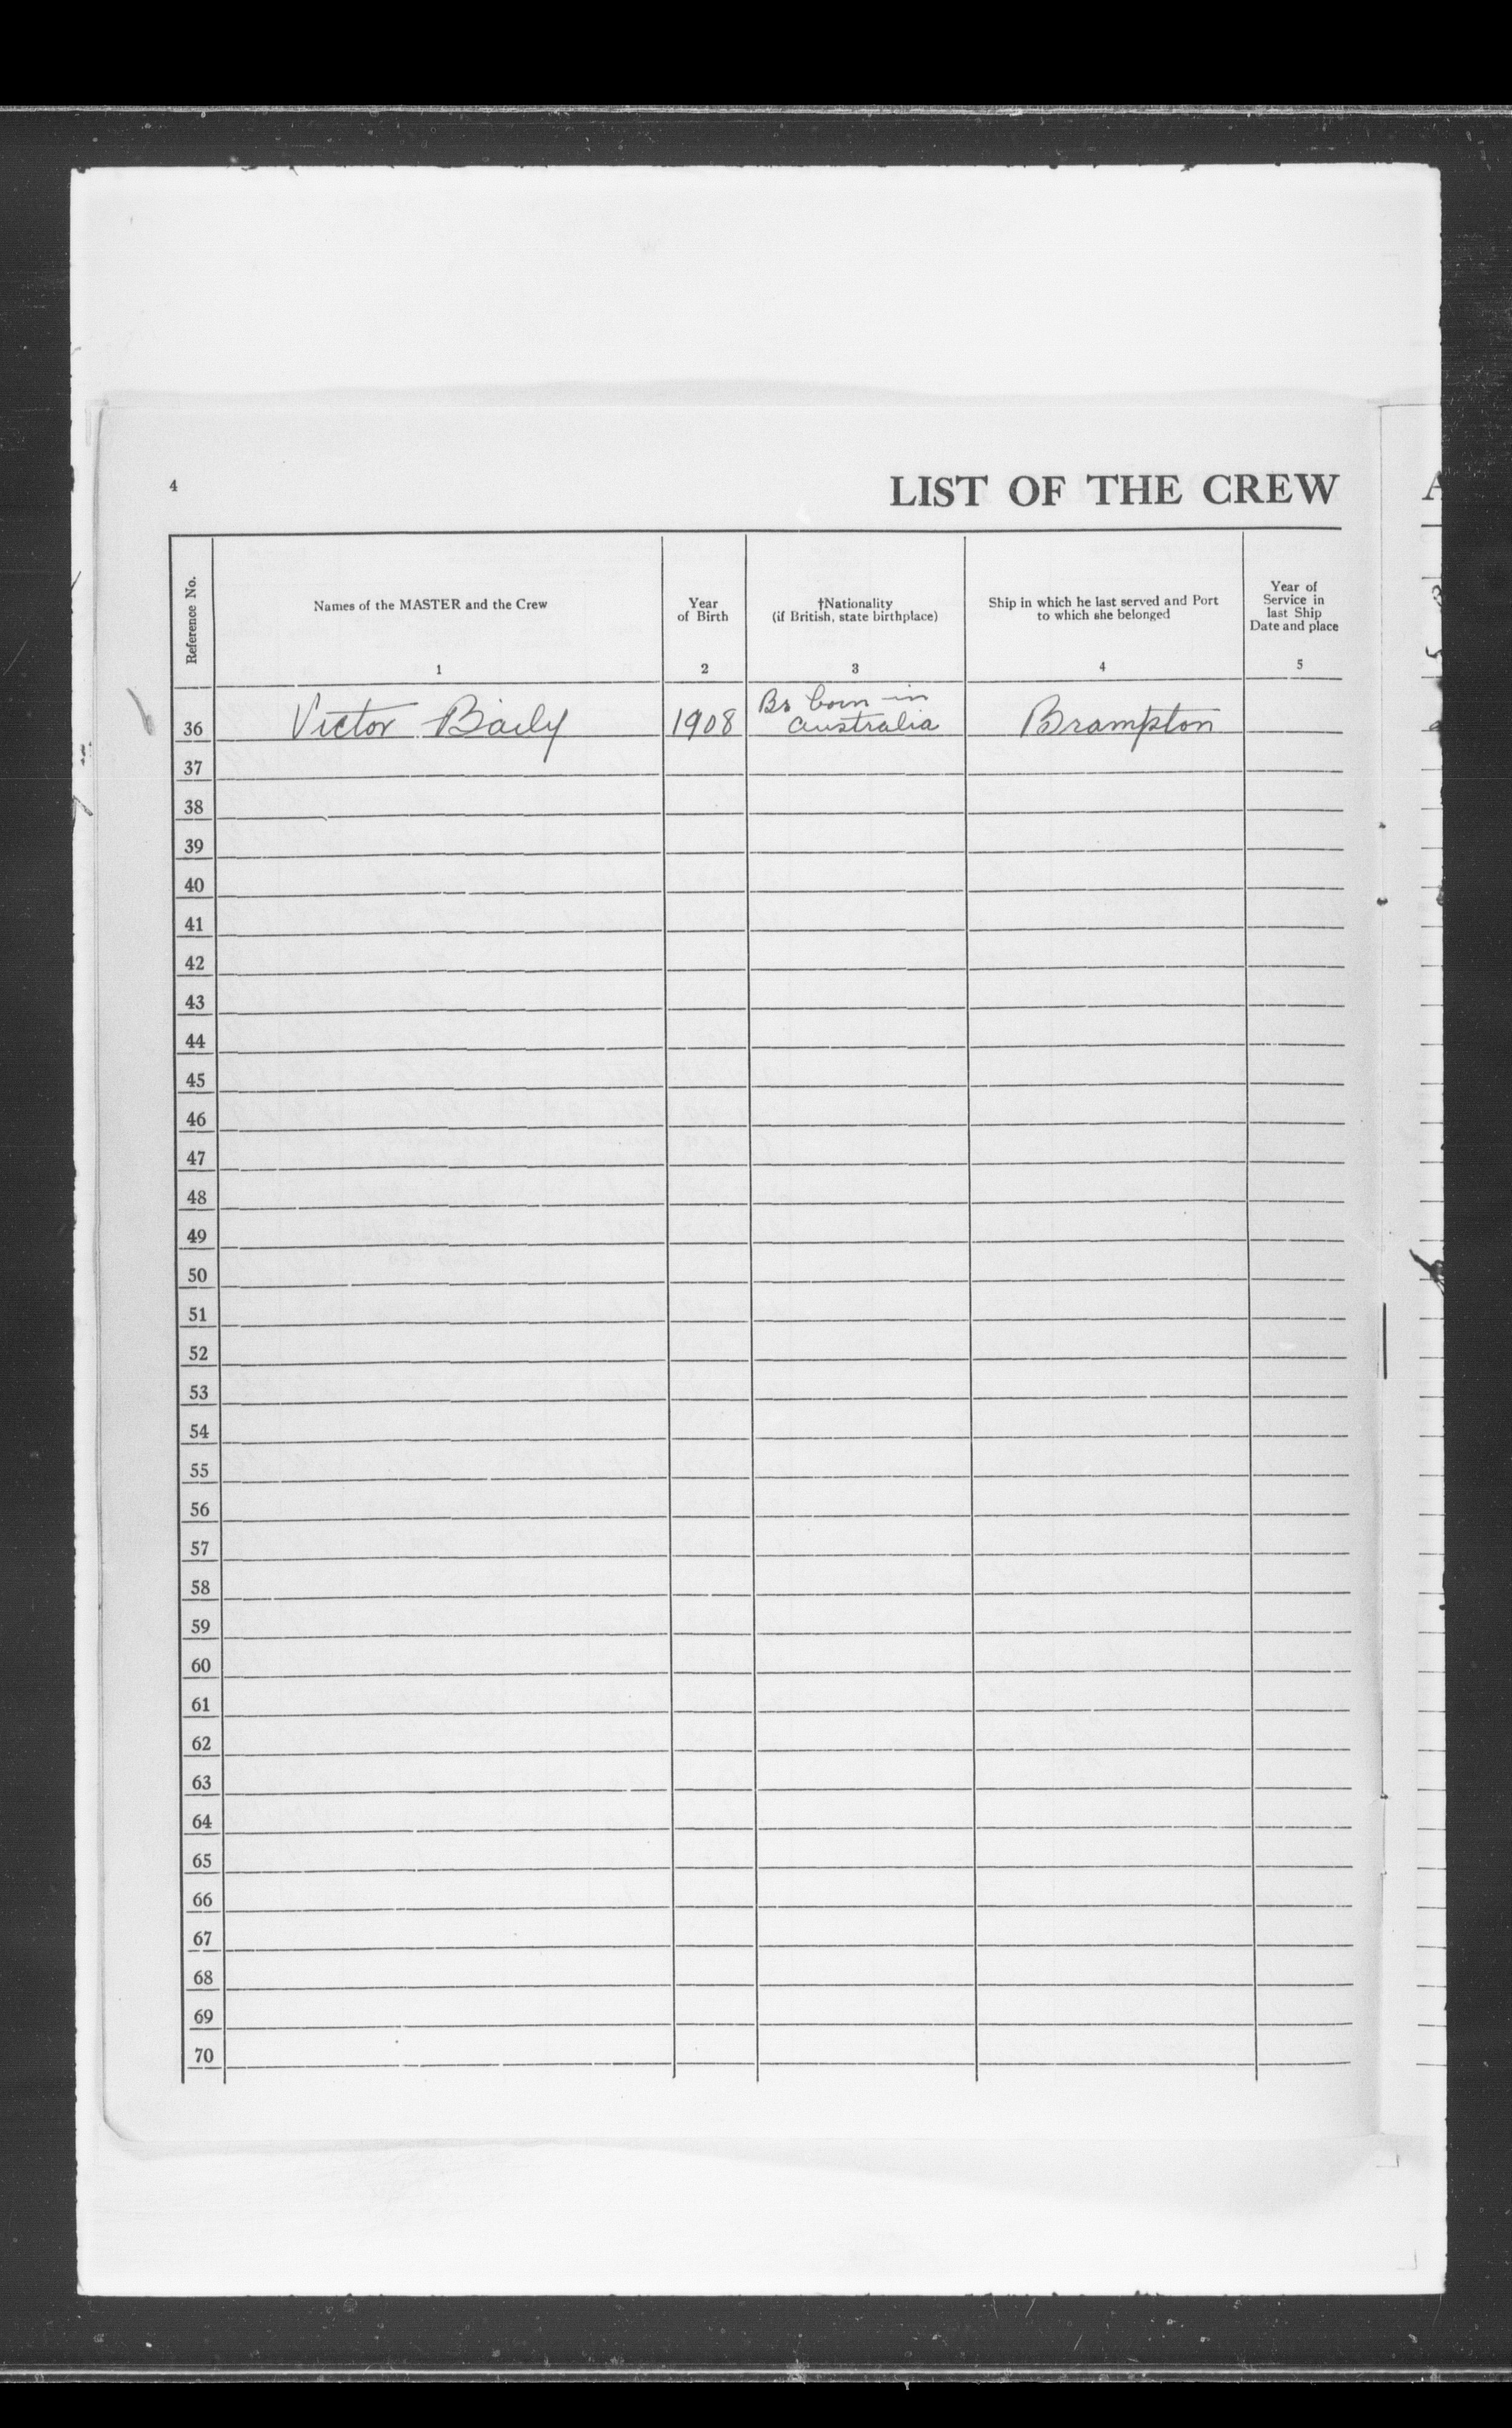 4
LIST OF THE CREW
Reference No.
Names of the MASTER and the Crew
1
Year
of Birth
2
†Nationality
(if British, state birthplace)
3
Ship in which he last served and Port
to which she belonged
4
Year of
Service in
last Ship
Date and place
5
36 Victor Baily 1908 Br born in
Australia Brampton
37
38
39
40
41
42
43
44
45
46
47
48
49
50
51
52
53
54
55
56
57
58
59
60
61
62
63
64
65
66
67
68
69
70